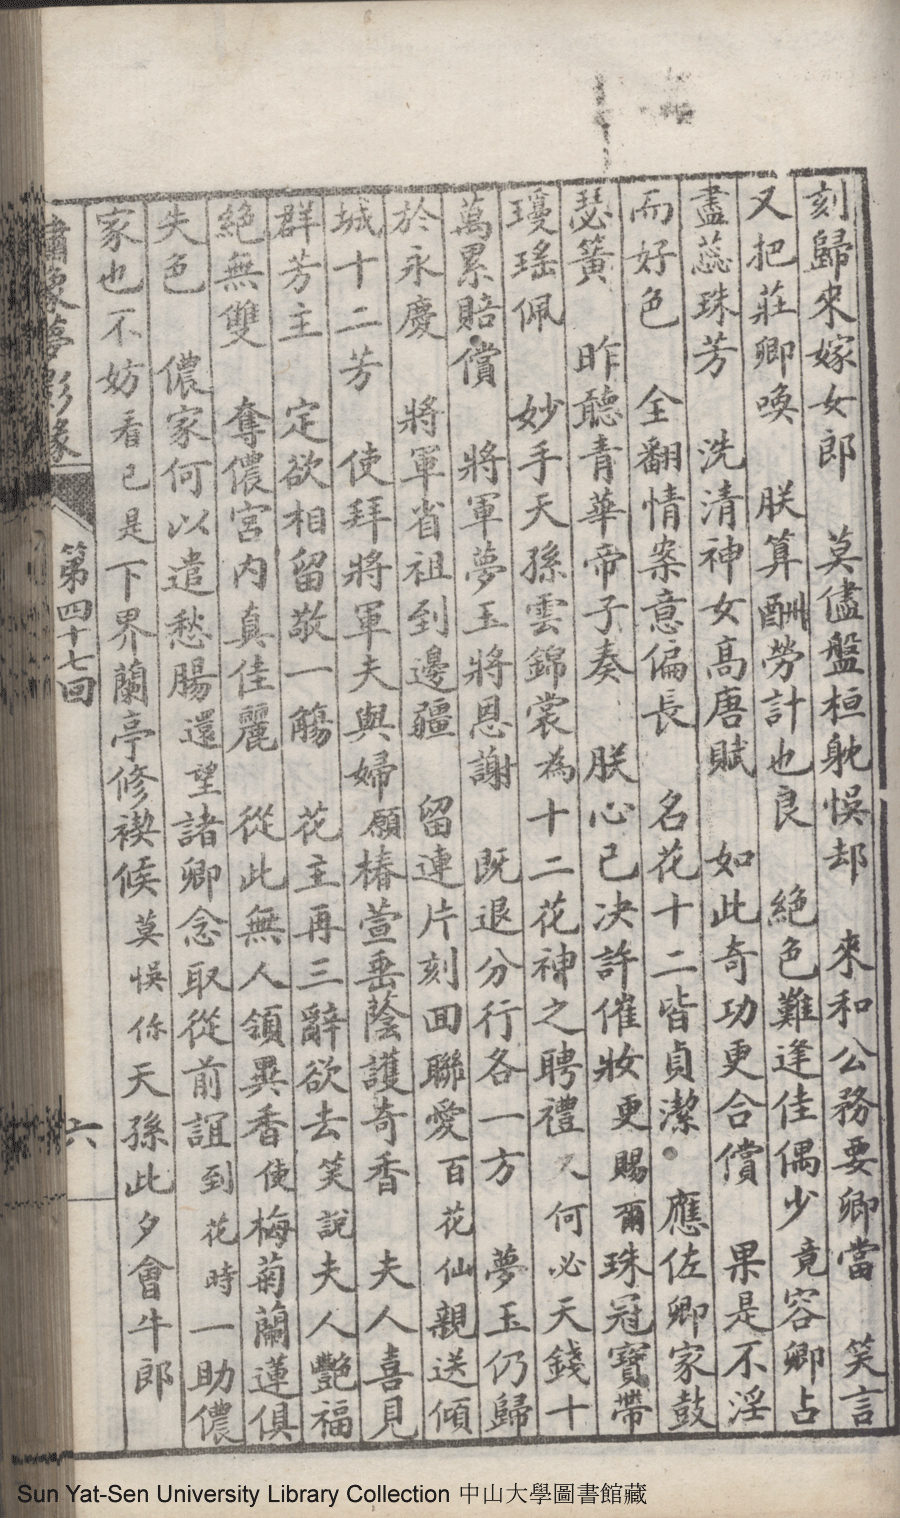 刻歸來嫁女郎　莫儘盤桓躭悞却　來和公務要卿當　笑言
又把莊卿喚　朕算酬勞計也良　絕色難逢佳偶少　竟容卿占
盡蕊珠芳　洗清神女高唐賦　如此奇功更合償　果是不淫
而好色　全翻情案意偏長　名花十二皆貞潔　應佐卿家鼓
瑟簧　昨聽青華帝子奏　朕心已决許催妝　更賜爾珠冠寶帶
瓊瑤佩　妙手天孫雲錦裳　為十二花神之聘禮　又何必天錢十
萬累賠償　將軍夢玉將恩謝　既退分行各一方　夢玉仍歸
於永慶　將軍省祖到邊疆　留連片刻回聯愛　百花仙親送傾
城十二芳　使拜將軍夫與婦　願椿萱垂蔭護奇香　夫人喜見
群芳主　定欲相留敬一觴　花主再三辭欲去　笑說夫人艷福
絕無雙　奪儂宮內真佳麗　從此無人領異香　使梅菊蘭蓮俱
失色　儂家何以遣愁腸　還望諸卿念取從前誼　到花時一助儂
家也不妨　看已是下界蘭亭修禊候　莫悞你天孫此夕會牛郎
繡像夢影緣
第四十七回
六
Sun Yat-Sen University Library Collection 中山大學圖書館藏